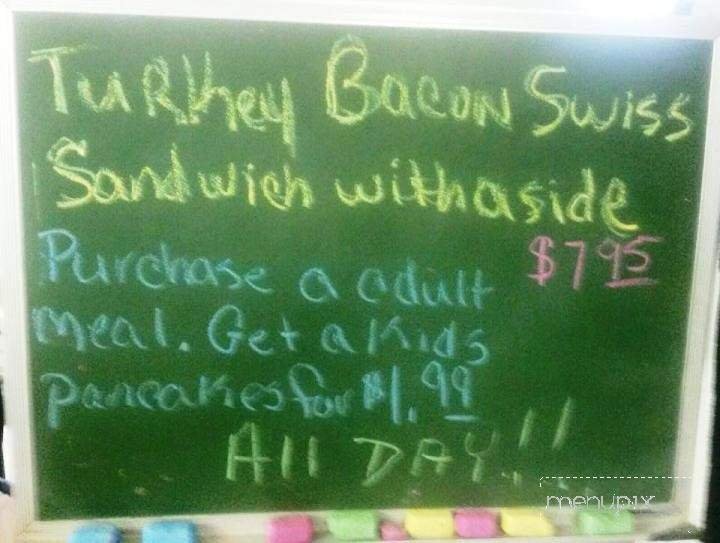 Turkey Bacon Swiss
Sandwich with a side
$7 95
Purchase a adult
meal. Get a Kids
pancakes for $1.99
All DAY!!
menupix